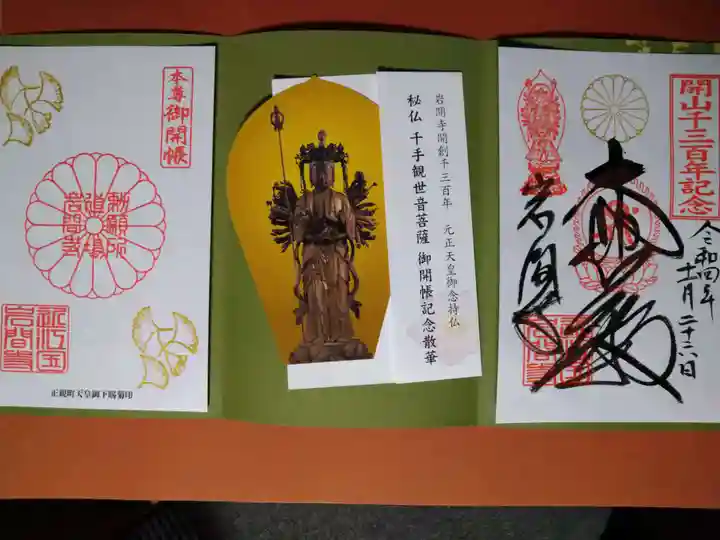 本尊御開帳
勅願所
道場
岩間寺
正親町天皇御下賜菊印
岩間寺開創千三百年 元正天皇御念持仏
秘仏 千手観世音菩薩 御開帳記念散華
開山千三百年記念
令和四年
十一月二十六日
岩間寺